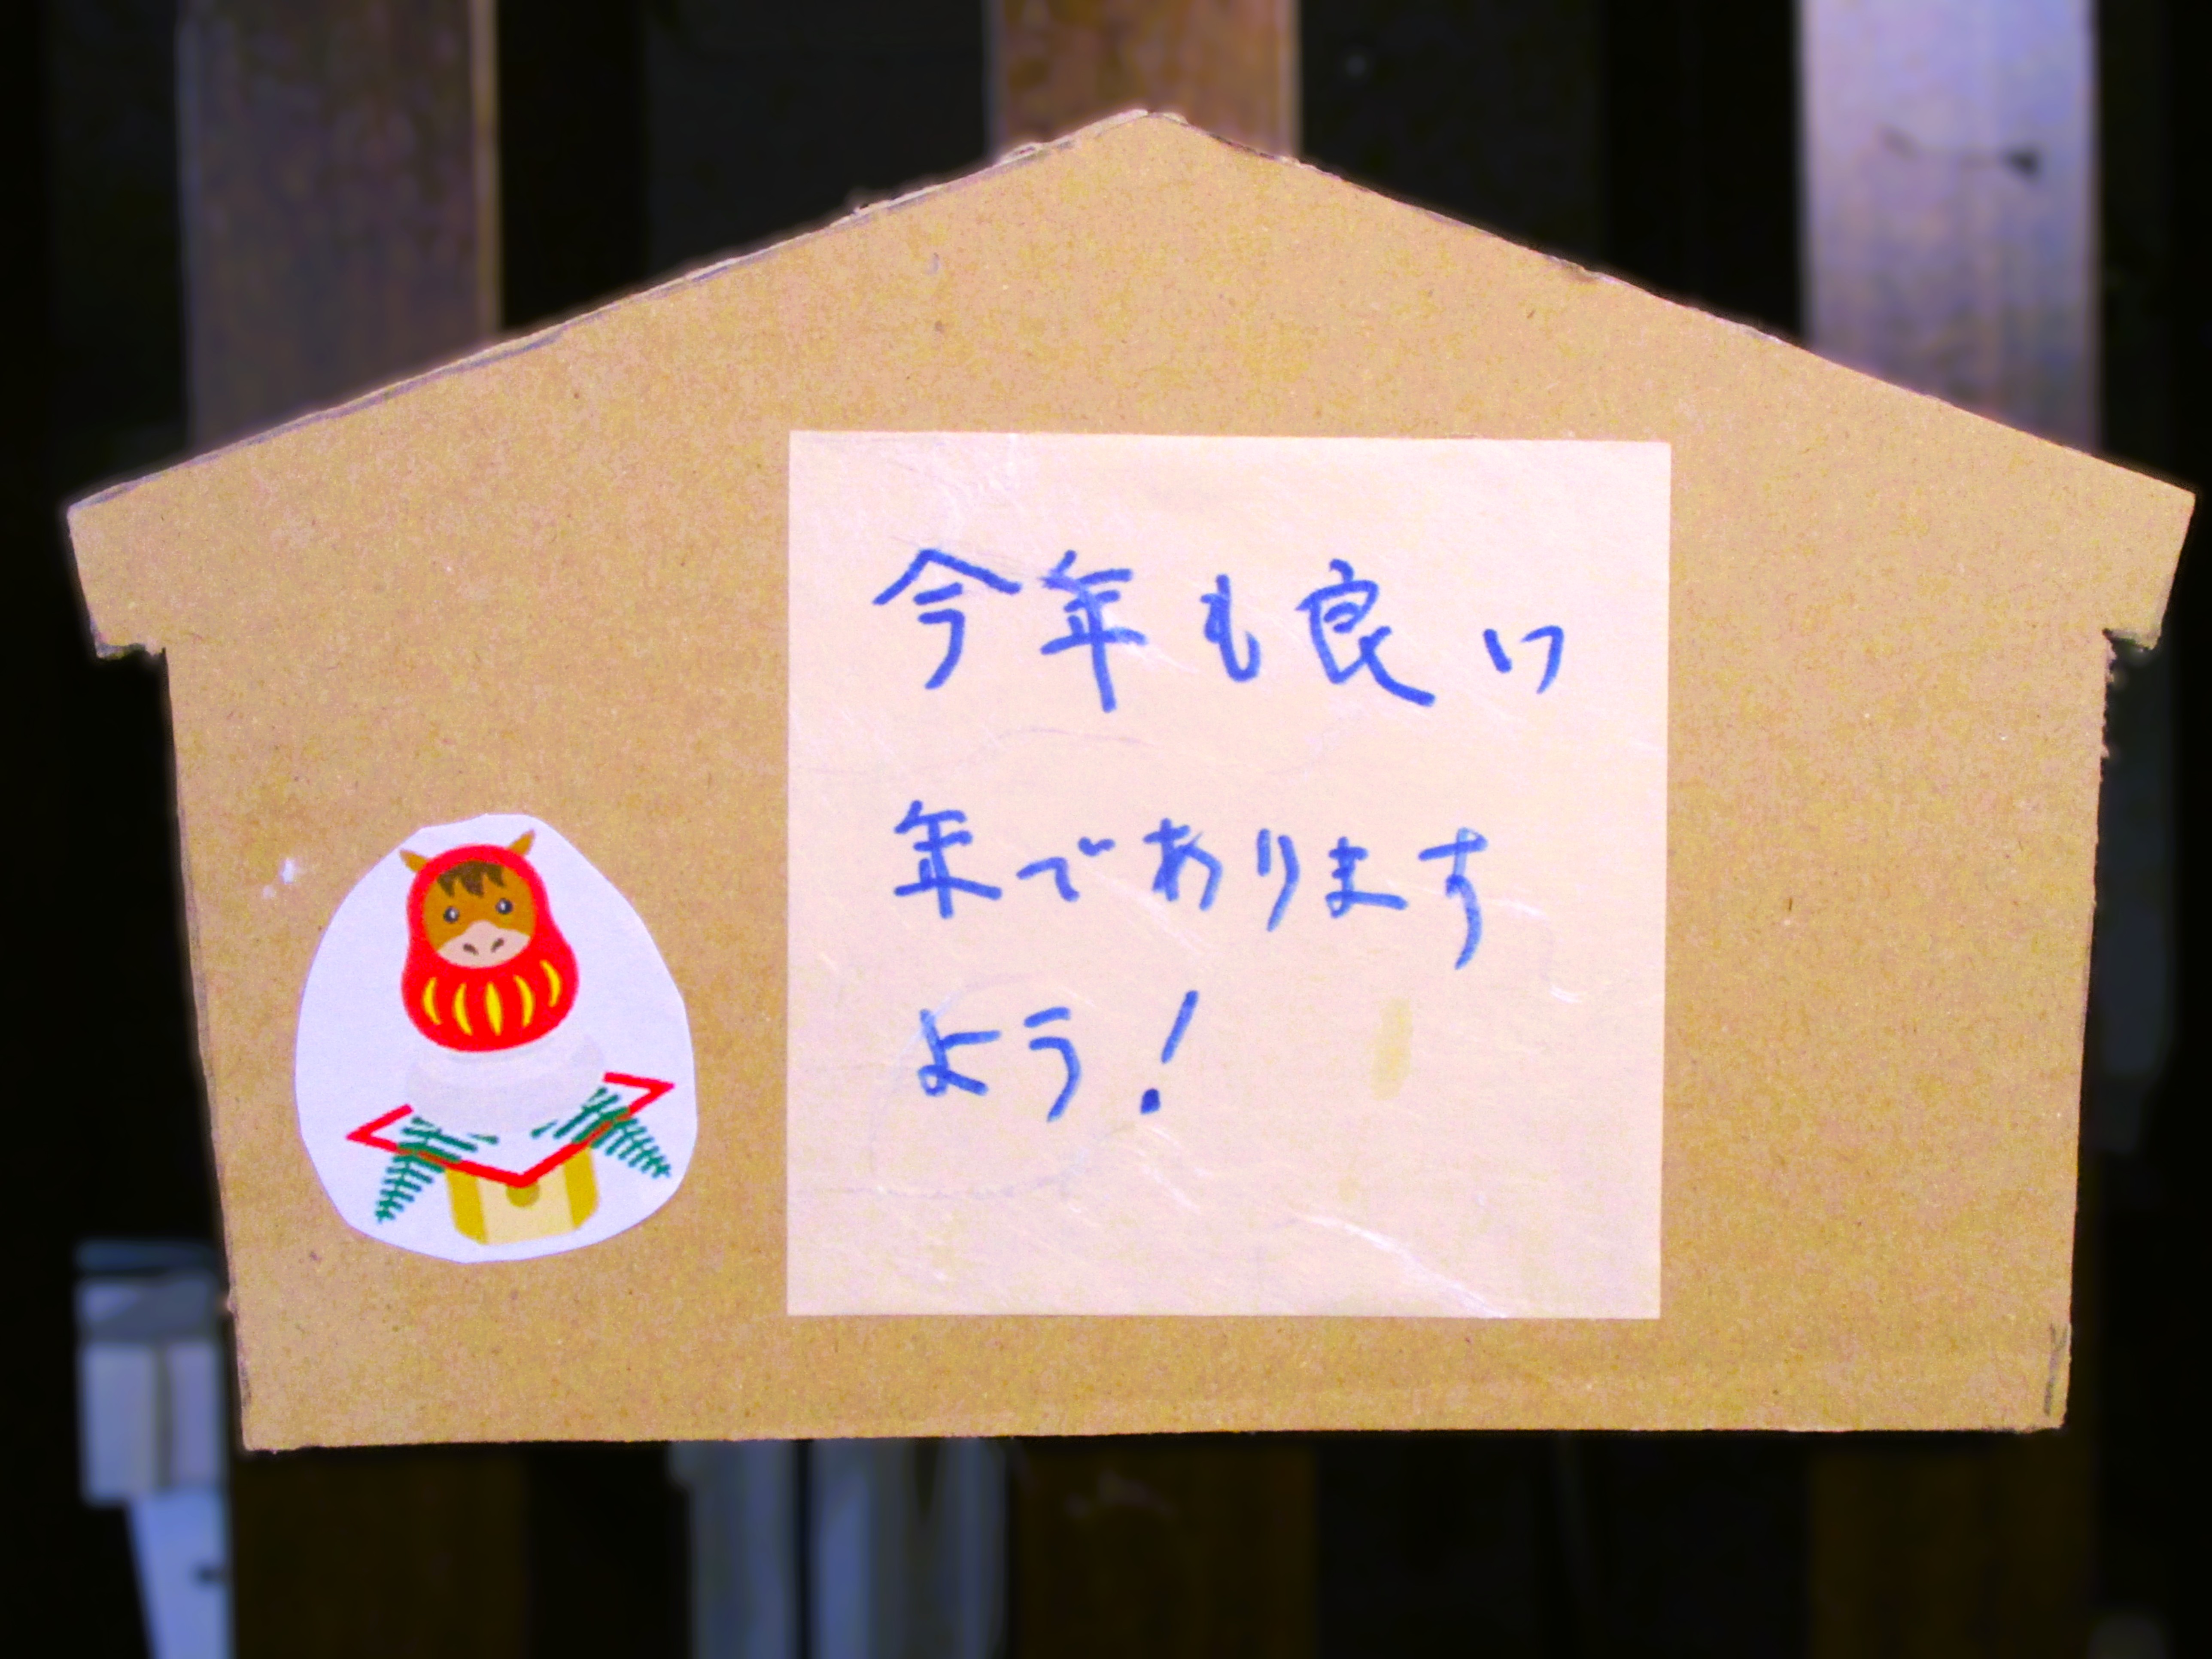 今年も良い
年であります
よう!